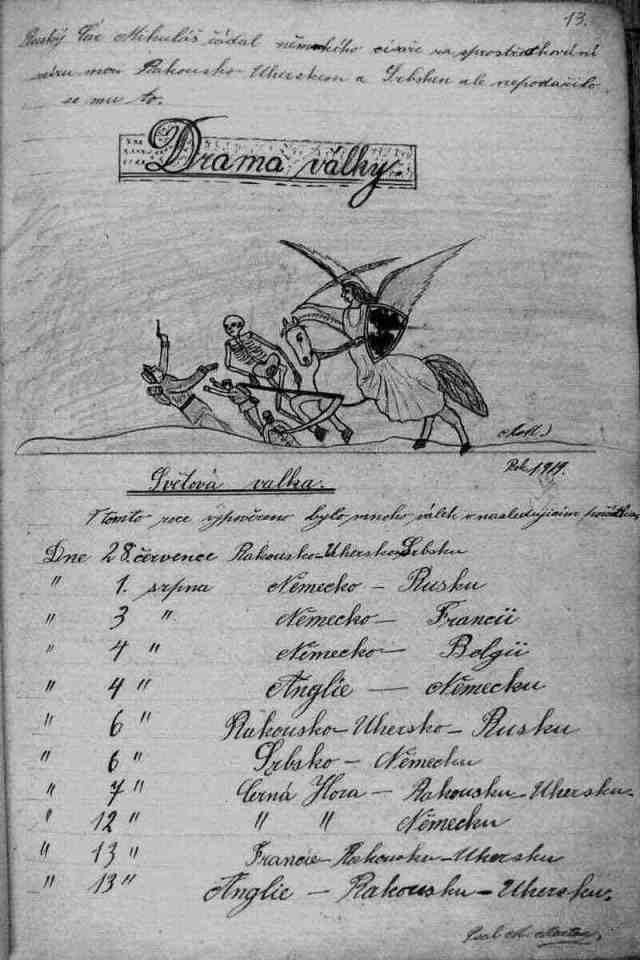 13.
Ruský Car Mikuláš žádal německého císaře za sprostředkování
míru mezi Rakousko-Uherskem a Srbskem ale nepodařilo
se mu to.
Drama války.
Rok 1914.
Světová valka.
V tomto roce vypovězeno bylo mnoho válek v nasledujícím
Dne 28. července Rakousko-Uhersko-Srbsku
" 1. srpna Německo - Rusku
" 3 " Německo - Francii
" 4 " Německo - Belgii
" 4 " Anglie - Německu
" 6 " Rakousko-Uhersko - Rusku
" 6 " Srbsko - Německu
" 7 " Černá Hora - Rakousku-Uhersku.
" 12 " " " Německu
" 13 " Francie - Rakousku-Uhersku
" 13 " Anglie - Rakousku-Uhersku.
Psal